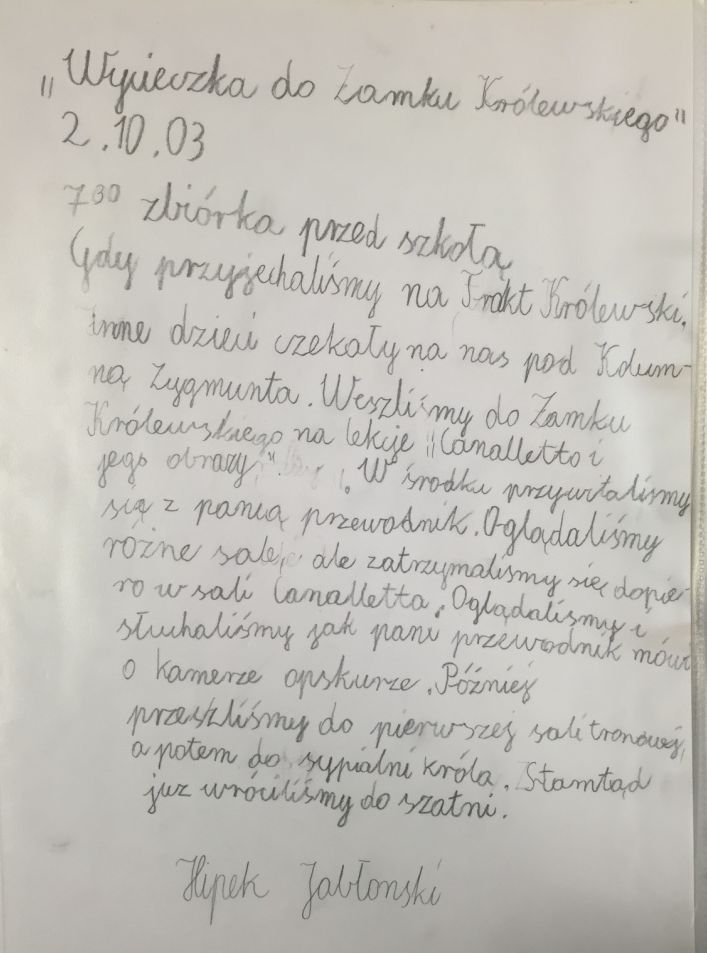 "Wycieczka do Zamku Królewskiego"
2.10.03
7³⁰ zbiórka przed szkołą
Gdy przyjechaliśmy na Trakt Królewski,
inne dzieci czekały na nas pod Kolum-
ną Zygmunta. Weszliśmy do Zamku
Królewskiego na lekcje "Canalletto i
jego obrazy". W środku przywitaliśmy
się z panią przewodnik. Oglądaliśmy
różne sale, ale zatrzymaliśmy się dopie-
ro w sali Canalletta. Oglądaliśmy i
słuchaliśmy jak pani przewodnik mówi
o kamerze opskurze. Później
przeszliśmy do pierwszej sali tronowej,
a potem do sypialni króla. Stamtąd
juz wróciliśmy do szatni.
Hipek Jabłonski